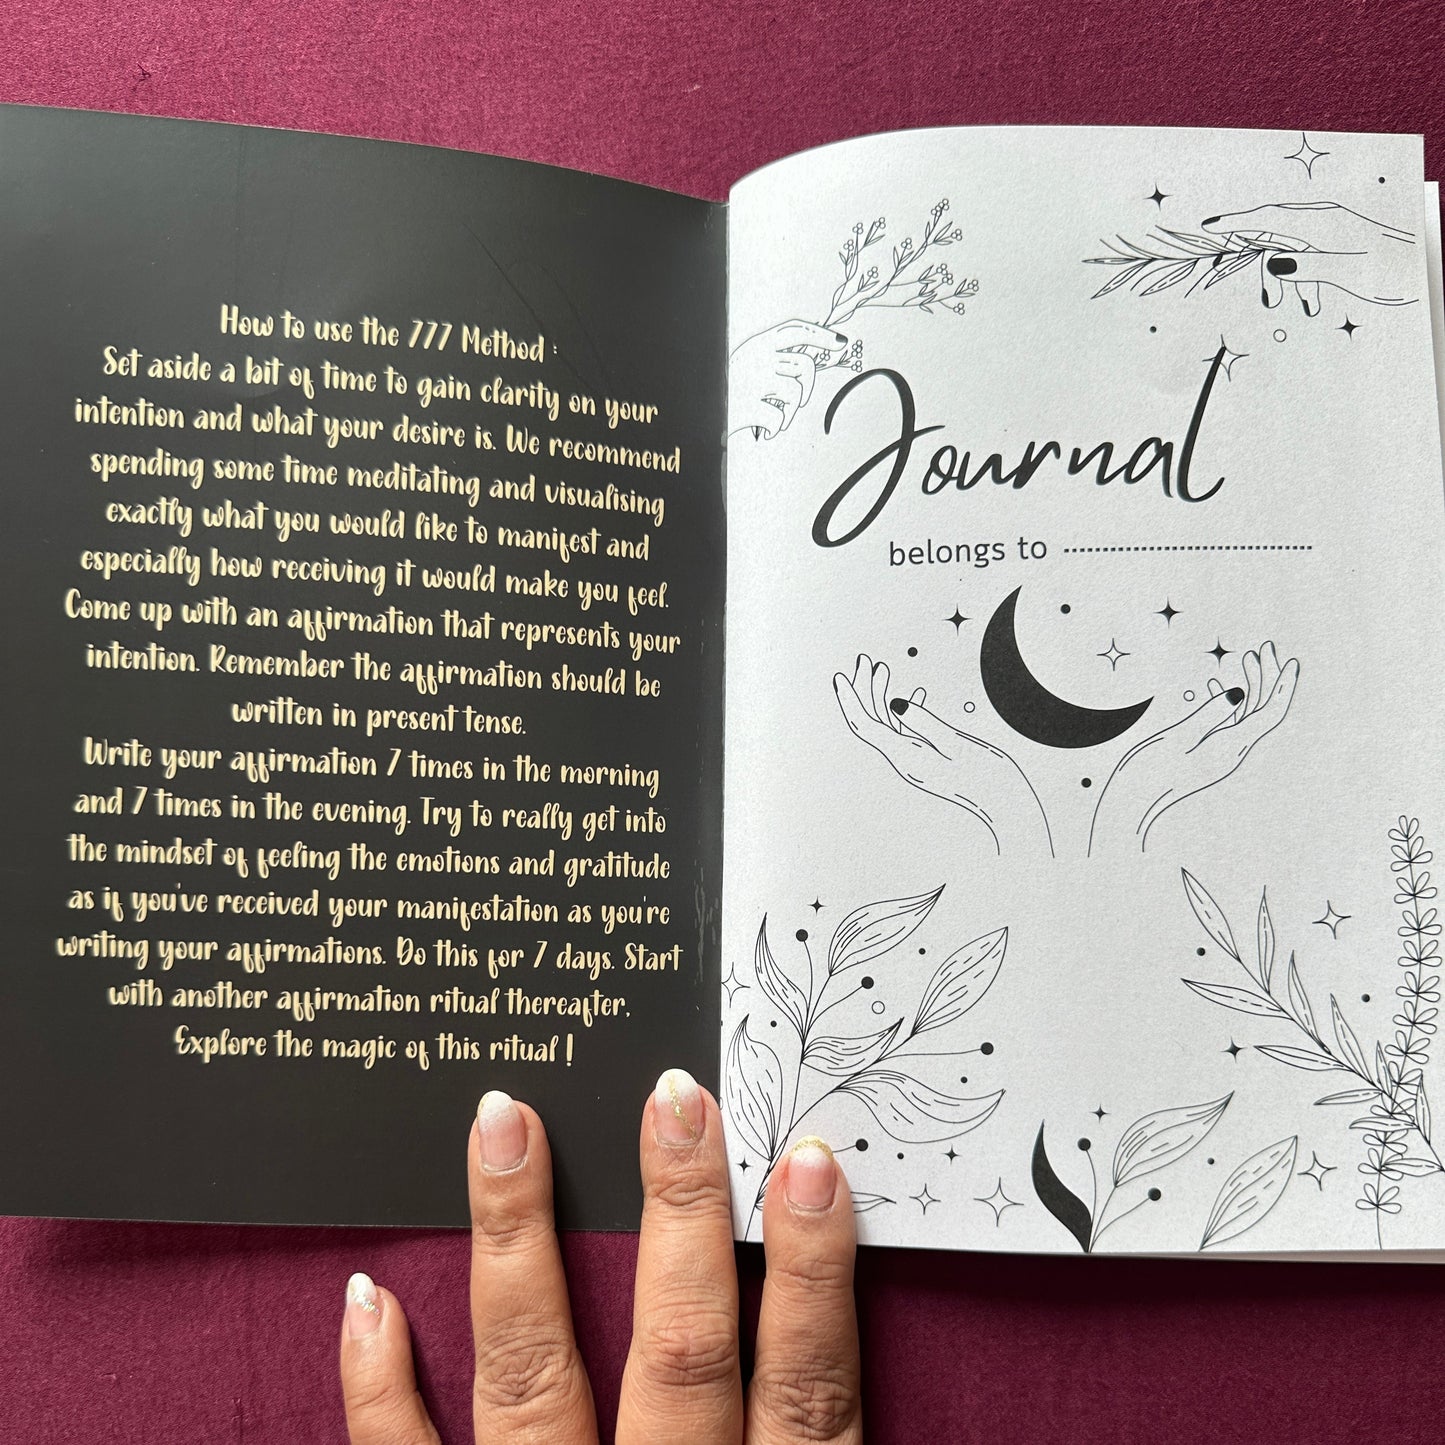 How to use the 777 Method :
Set aside a bit of time to gain clarity on your
intention and what your desire is. We recommend
spending some time meditating and visualising
exactly what you would like to manifest and
especially how receiving it would make you feel.
Come up with an affirmation that represents your
intention. Remember the affirmation should be
written in present tense.
Write your affirmation 7 times in the morning
and 7 times in the evening. Try to really get into
the mindset of feeling the emotions and gratitude
as if you've received your manifestation as you're
writing your affirmations. Do this for 7 days. Start
with another affirmation ritual thereafter.
Explore the magic of this ritual !
Journal
belongs to